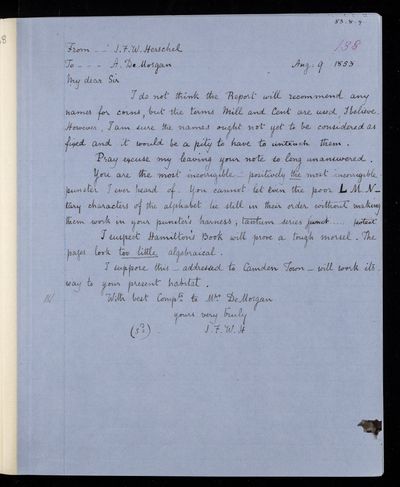 53.8.9.
138
From - : J.F.W. Herschel
To - - - A. De Morgan Aug. 9 1853
My dear Sir
I do not think the Report will recommend any
names for coins, but the terms Mill and Cent are used I believe.
However, I am sure the names ought not yet to be considered as
fixed and it would be a pity to have to unteach them.
Pray excuse my leaving your note so long unanswered.
You are the most incorrigible - positively the most incorrigible
punster I ever heard of. You cannot let even the poor L M N -
tary characters of the alphabet lie still in their order without making
them work in your punster's harness, tantum series
I suspect Hamilton's Book will prove a tough morsel. The
pages look too little algebraical.
I suppose this - addressed to Camden Town - will work its
way to your present habitat.
With best Compts to Mrs De Morgan
yours very truly
J.F.W.H